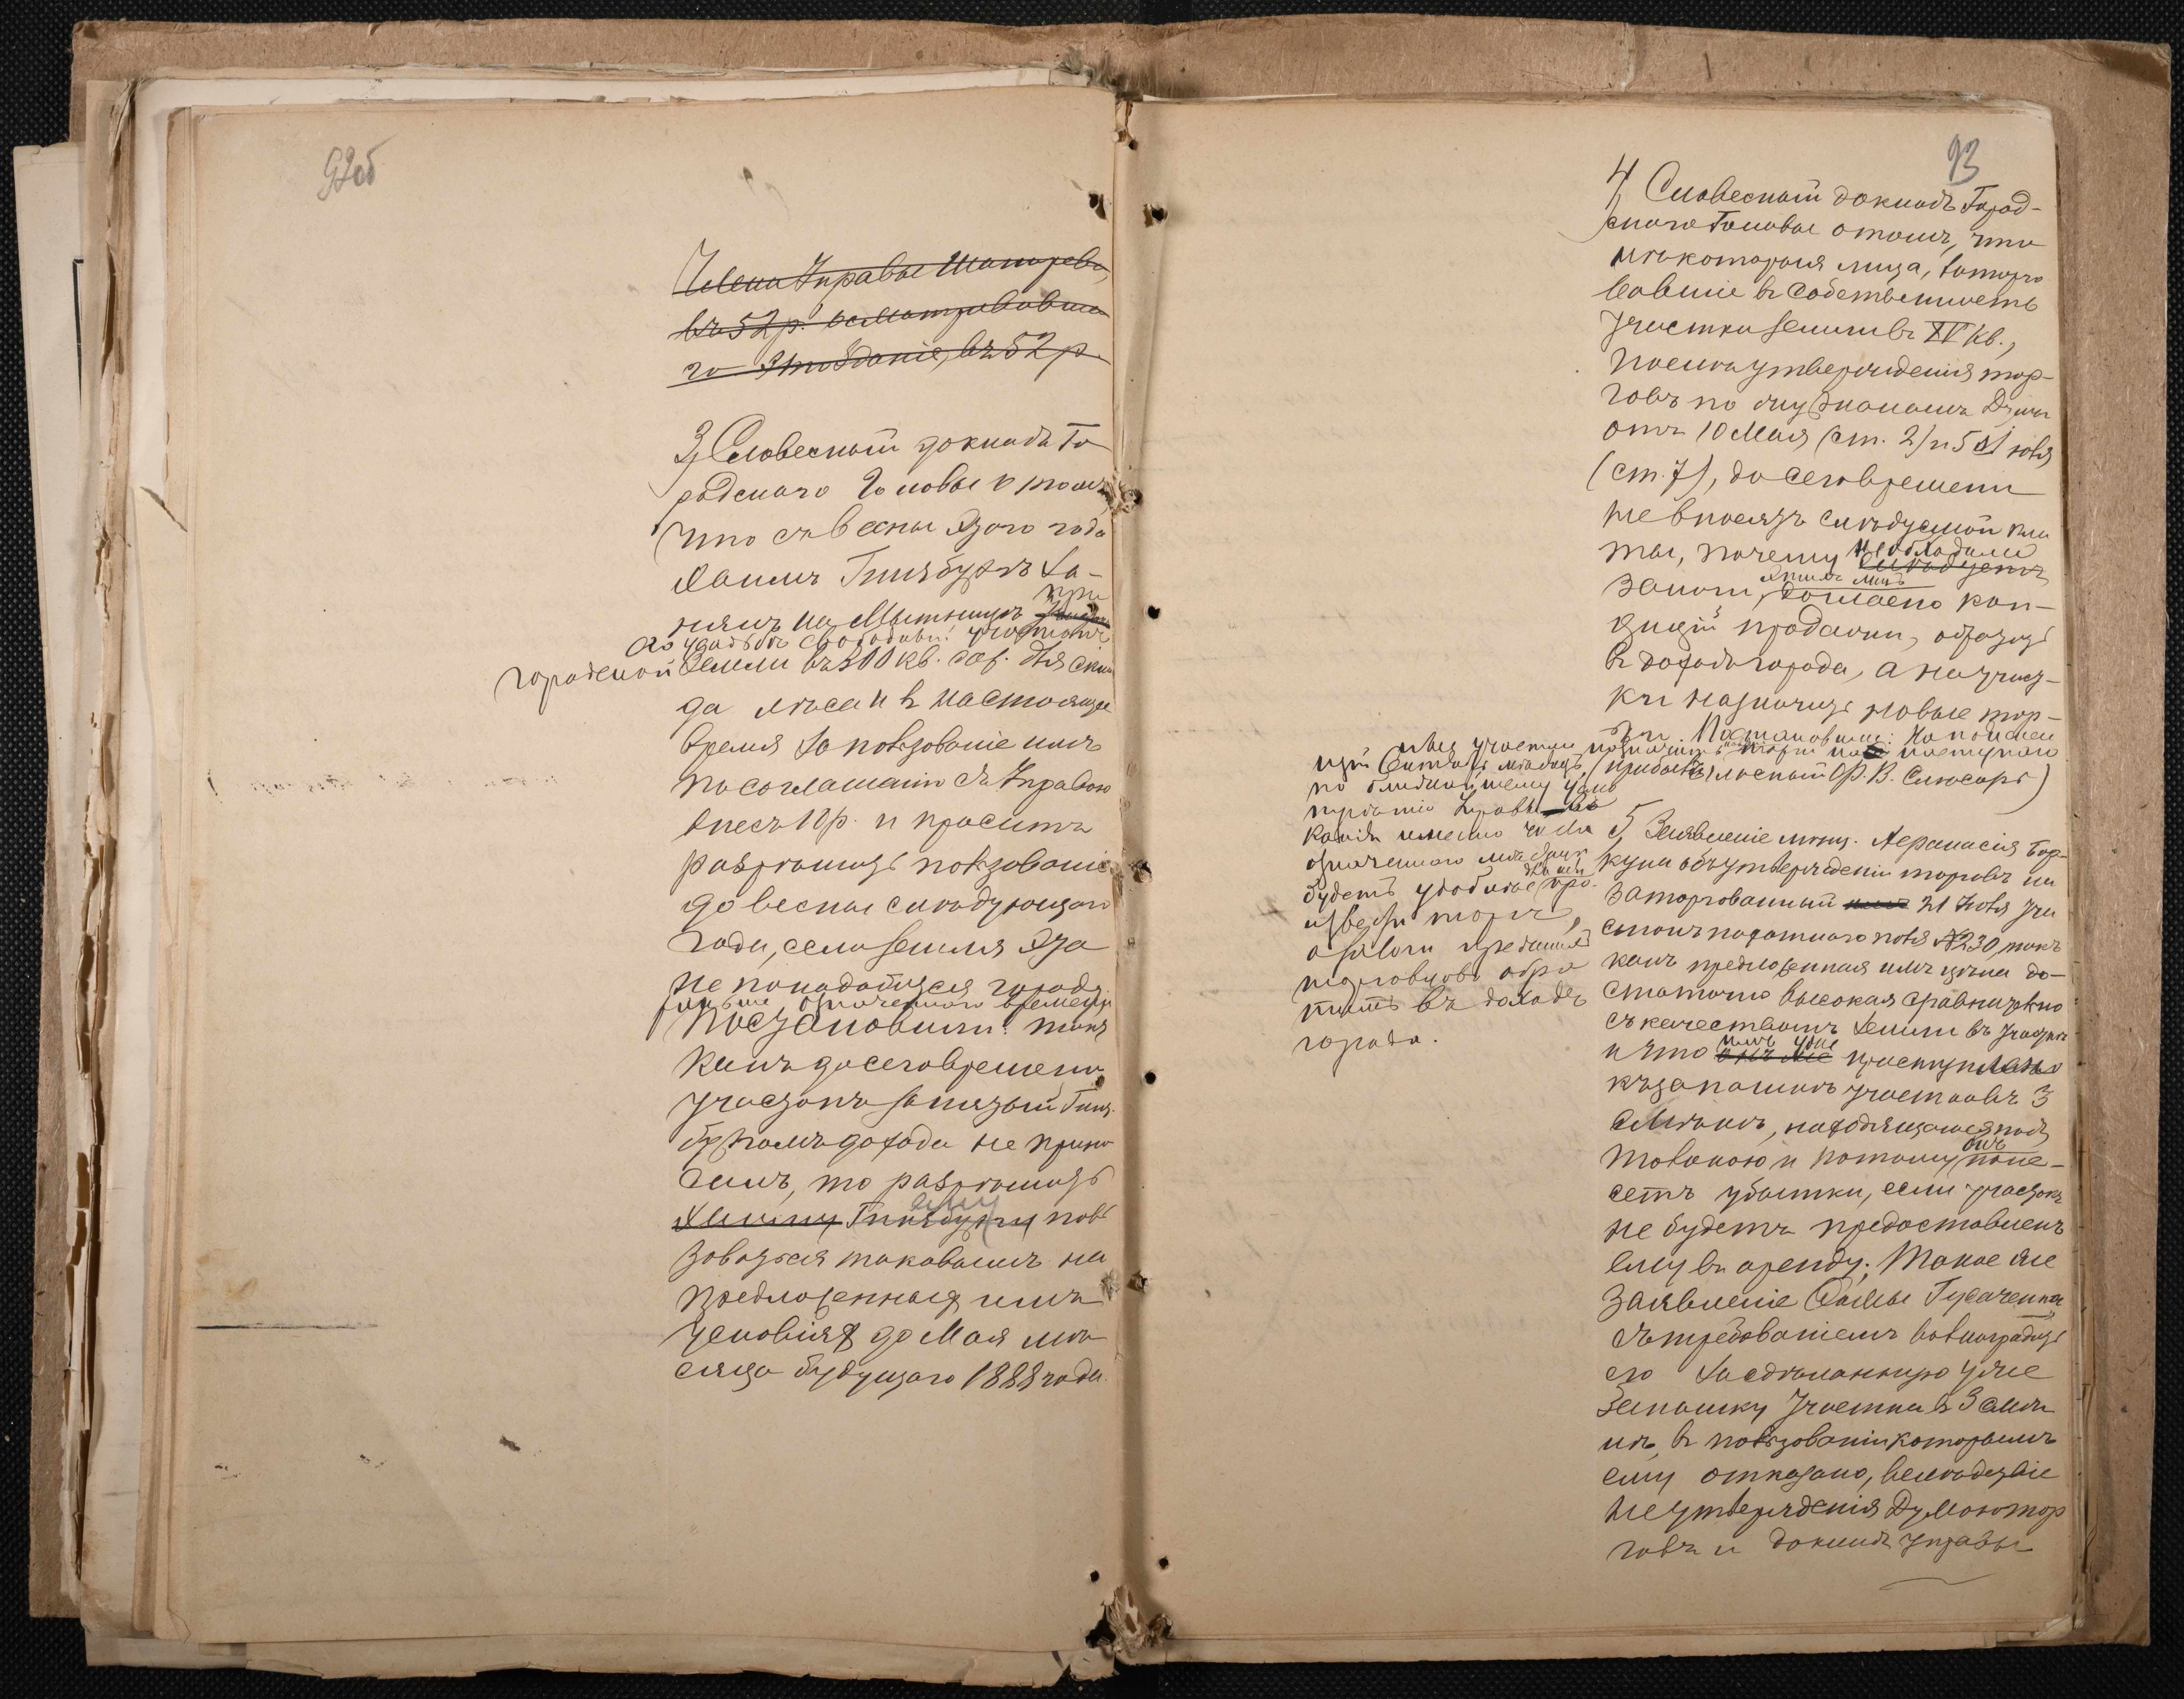 92об
Члена Управы Шапарева,
въ 52 р. осматривавша
го это зданіе, въ 52 р.
3, Словесный докладъ Го
родскаго Головы о томъ,
что съ весны этого года
Хаимъ Гинзбургъ за-
нялъ на Мытницѣ при
его усадьбѣ свободный участокъ
городской земли въ 300 кв. саж. для скла
да лѣса и въ настоящее
время за пользованіе имъ
по соглашенію съ Управою
внесъ 10 р. и проситъ
разрѣшить пользованіе
до весны слѣдующаго
года, если земля эта
не понадобится городу
раньше означеннаго времени
Постановили: такъ
какъ до сего времени
участокъ занятый Гинз-
бургомъ дохода не прино
силъ, то разрѣшить
Хаиму Гинзбургу ему поль
зоваться таковымъ на
предложенныя имъ
условіяхъ до Мая мѣ
сяца будущаго 1888 года.
93
4, Словесный докладъ Город-
скаго Головы о томъ, что
нѣкоторыя лица, заторго
вавшіе въ собственность
участки земли въ IV кв.,
послѣ утвержденія тор-
говъ по журналамъ Думы
отъ 10 Мая (ст. 2) и 5 Іюня
(ст. 7), до сего времени
не вносятъ слѣдуемой пла
ты, почему необходимо
слѣдуетъ
залоги этихъ лицъ, согласно кон-
дицій продажи, обратить
въ доходъ города, а на участ-
ки назначить новые тор-
ги. Постановили: На подлежа
щіе участки назначить новые торги
(прибылъ гласный Ф. В. Слюсарь)
по ближайшему усмо
трѣнію Управы въ
какія именно числа
означеннаго мѣсяца
будетъ удобнѣе для нея про-
извести торги,
а залоги прежнихъ
торговцовъ обра
тить въ доходъ
города.
5, Заявленіе мѣщ. Афанасія Бор-
куна объ утвержденіи торговъ на
заторгованный 21 Іюля уча
стокъ пахатнаго поля № 230, такъ
какъ предложенная имъ цѣна до-
статочно высокая сравнительно
съ качествомъ земли въ участкѣ
и что имъ уже приступлено
къ запашкѣ участковъ 3
смѣны, находящагося подъ
толокою и потому онъ поне-
сетъ убытки, если участокъ
не будетъ предоставленъ
ему въ аренду; Такое же
заявленіе Фомы Гусаченка
съ требованіемъ вознаградить
его за сдѣланную уже
запашку участка въ 3 смѣ
нѣ, въ пользованіи которымъ
ему отказано, вслѣдствіе
неутвержденія Думою тор
говъ и докладъ Управы